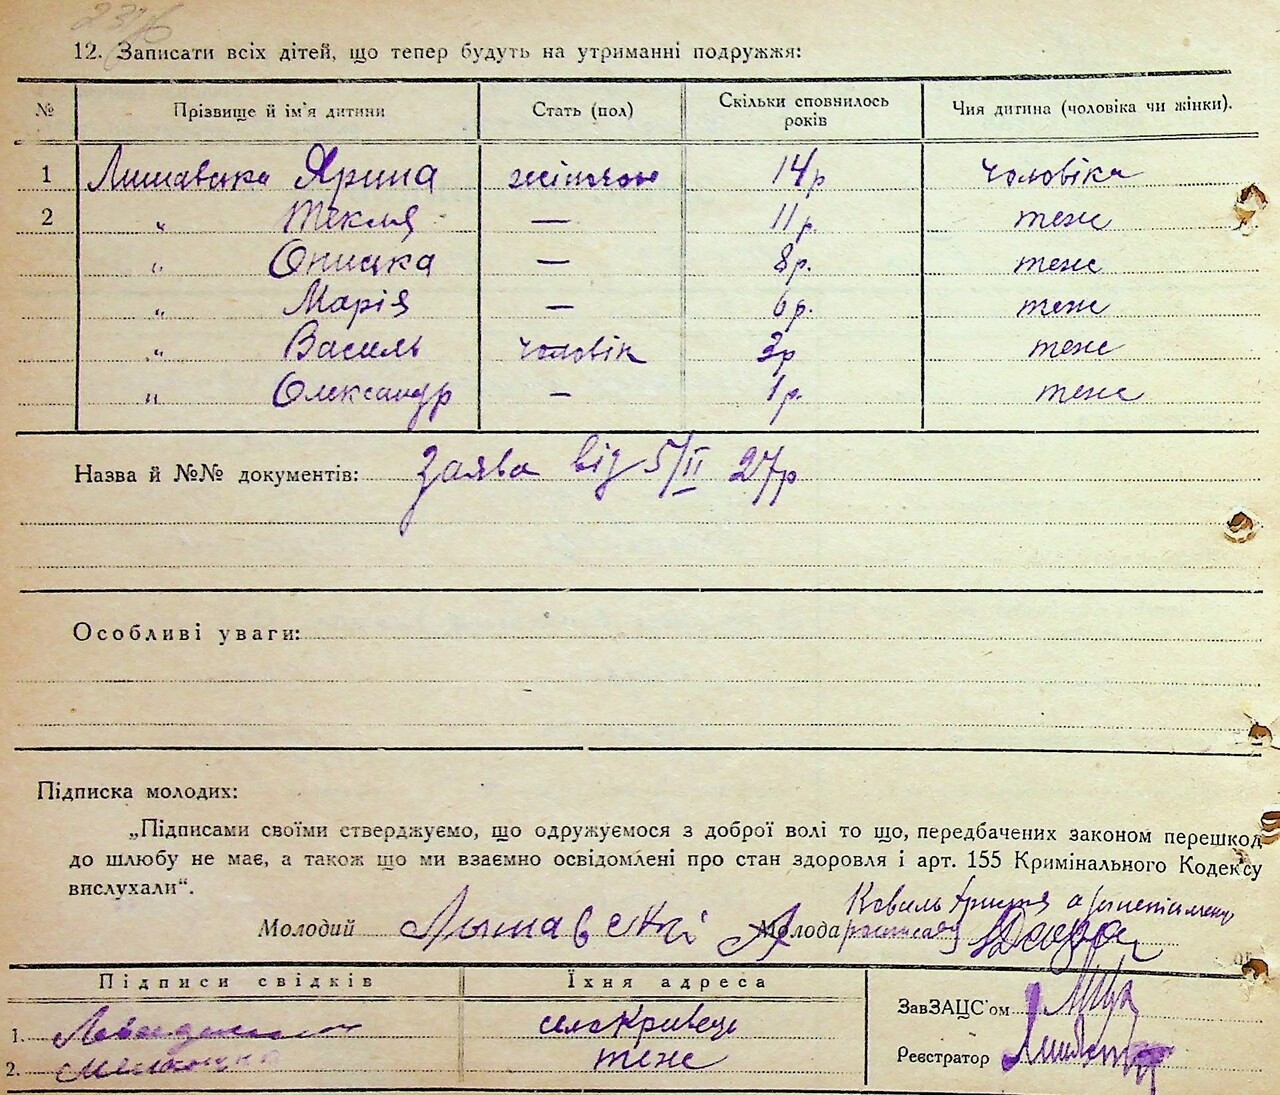 2316
12. Записати всіх дітей, що тепер будуть на утриманні подружжя:
№ Прізвище й ім'я дитини Стать (пол) Скільки сповнилось років Чия дитина (чоловіка чи жінки).
1 Лишавська Ярина жіночою 14р чоловіка
2 " Текля — 11р. теж
" Онишка — 8р. теж
" Марія — 6р. теж
" Василь чоловік 3р теж
" Олександр — 1р. теж
Назва й №№ документів: Заява від 5/II 27р
Особливі уваги:
Підписка молодих:
„Підписами своїми стверджуємо, що одружуємося з доброї волі то що, передбачених законом перешкод
до шлюбу не має, а також що ми взаємно освідомлені про стан здоровля і арт. 155 Кримінального Кодексу
вислухали“.
Молодий Лышавскій Молода
Підписи свідків Їхня адреса
1. село Кривець
2. теж
ЗавЗАЦС'ом
Реєстратор